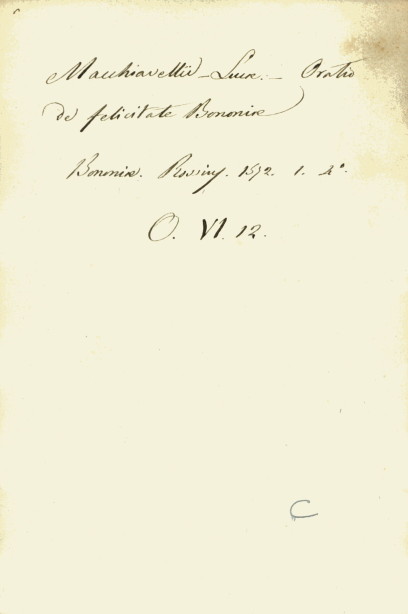 Macchiavellii - Lucæ. - Oratio
de felicitate Bononiæ
Bononiæ. Rossius. 1572. 1. 4°.
O. VI. 12.
C